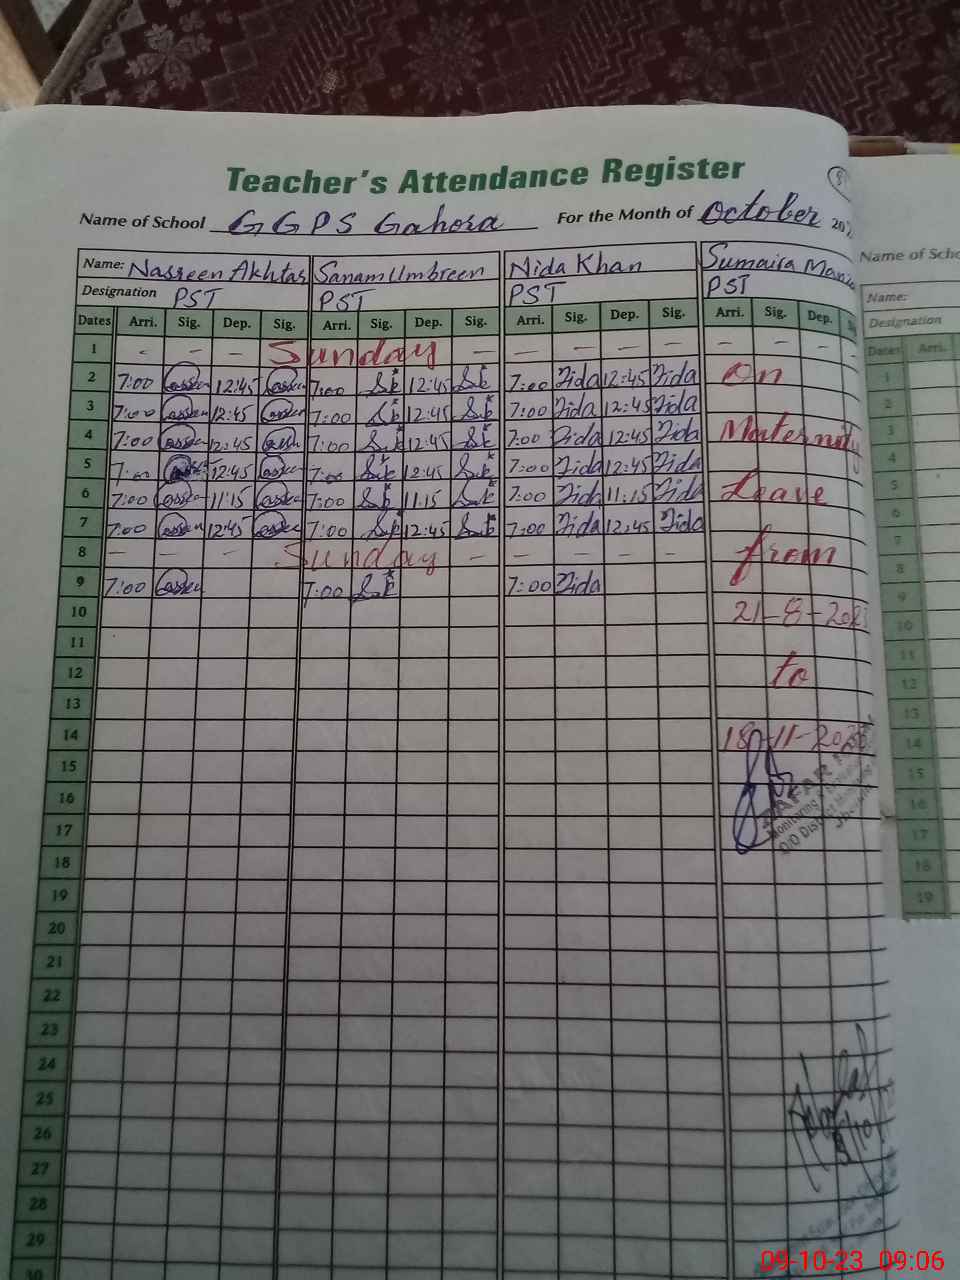 Teacher's Attendance Register
Name of School G G P S Gahora For the Month of October 202
Name: Nasreen Akhtar Sanam Umbreen Nida Khan Sumaira
Designation PST PST PST PST
Dates Arri. Sig. Dep. Sig. Arri. Sig. Dep. Sig. Arri. Sig. Dep. Sig. Arri. Sig. Dep.
1 - - - Sunday - - - - - - - - -
2 7:00 12:45 7:00 12:45 7:00 Nida 12:45 Nida On
3 7:00 12:45 7:00 12:45 7:00 Nida 12:45 Nida
4 7:00 12:45 7:00 12:45 7:00 Nida 12:45 Nida Maternity
5 7:00 12:45 7:00 12:45 7:00 Nida 12:45 Nida
6 7:00 11:15 7:00 11:15 7:00 Nida 11:15 Nida Leave
7 7:00 12:45 7:00 12:45 7:00 Nida 12:45 Nida
8 - - - Sunday - - - - - from
9 7:00 7:00 7:00 Nida
10 21-8-2023
11
12 to
13
14 18-11-2023
15
16 ZAFAR
17 Monitoring &
18 D/O District Monitoring
19
20
21
22
23
24
25
26
27
28
29
30
Name of Scho
Name:
Designation
Dates Arri.
1
2
3
4
5
6
7
8
9
10
11
12
13
14
15
16
17
18
19
09-10-23 09:06